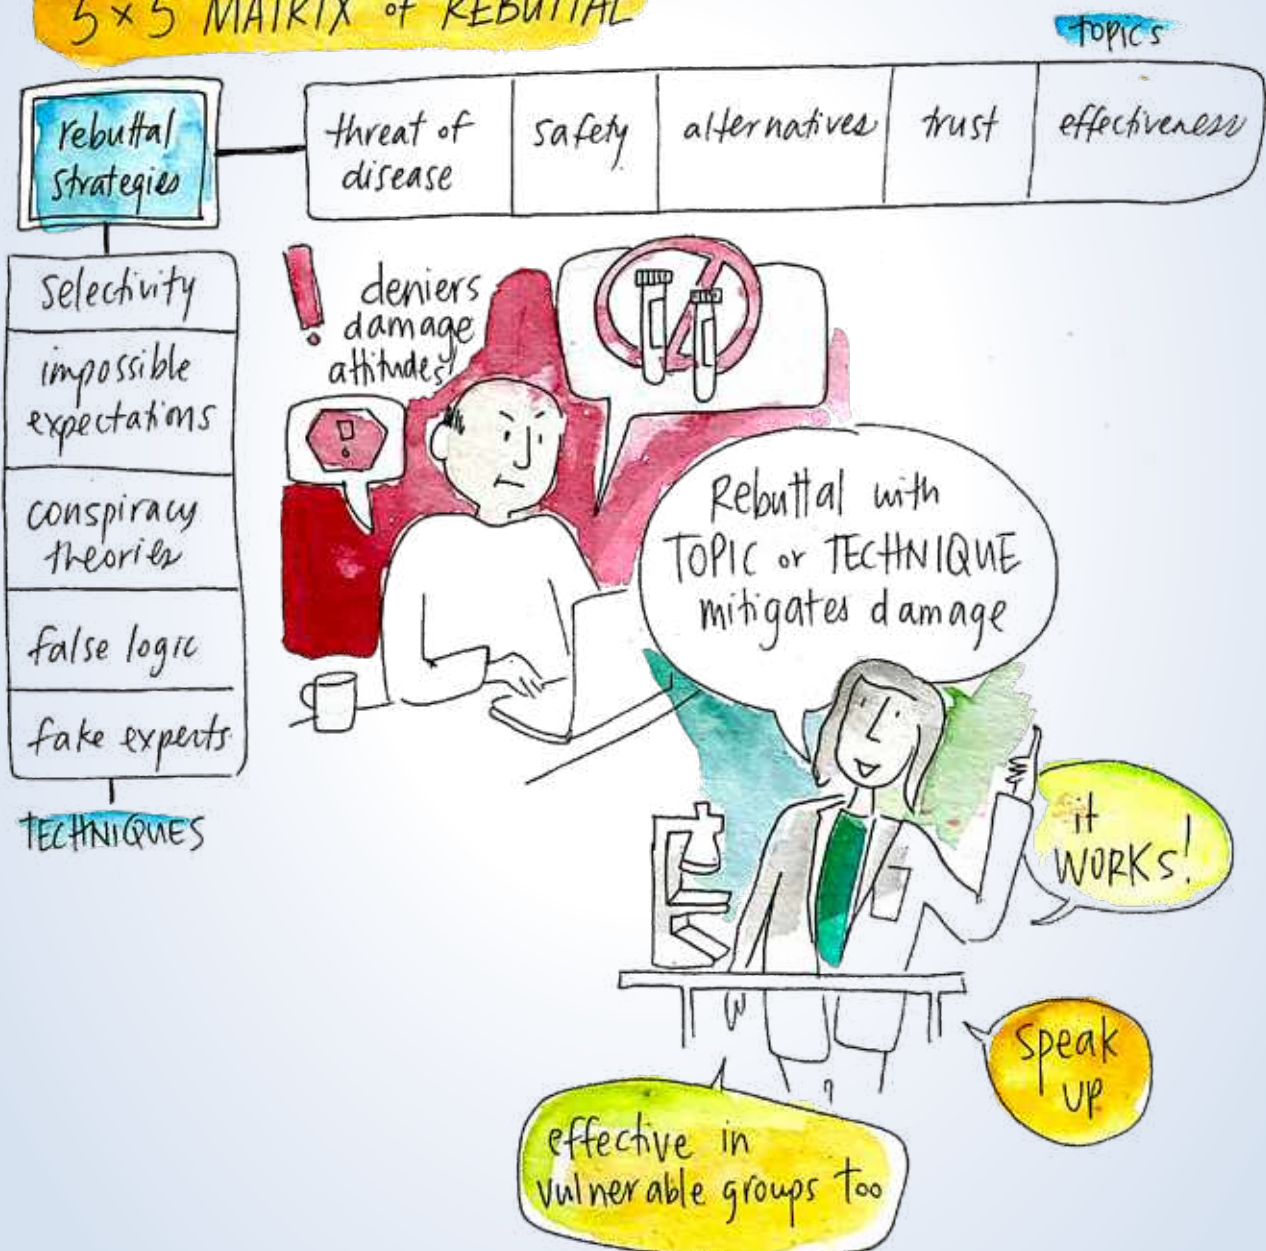 5x5 MATRIX of REBUTTAL
TOPICS
rebuttal
strategies
threat of
disease
safety
alternatives
trust
effectiveness
selectivity
impossible
expectations
conspiracy
theories
false logic
fake experts
TECHNIQUES
!
deniers
damage
attitudes
!
Rebuttal with
TOPIC or TECHNIQUE
mitigates damage
it
WORKS!
speak
up
effective in
vulnerable groups too